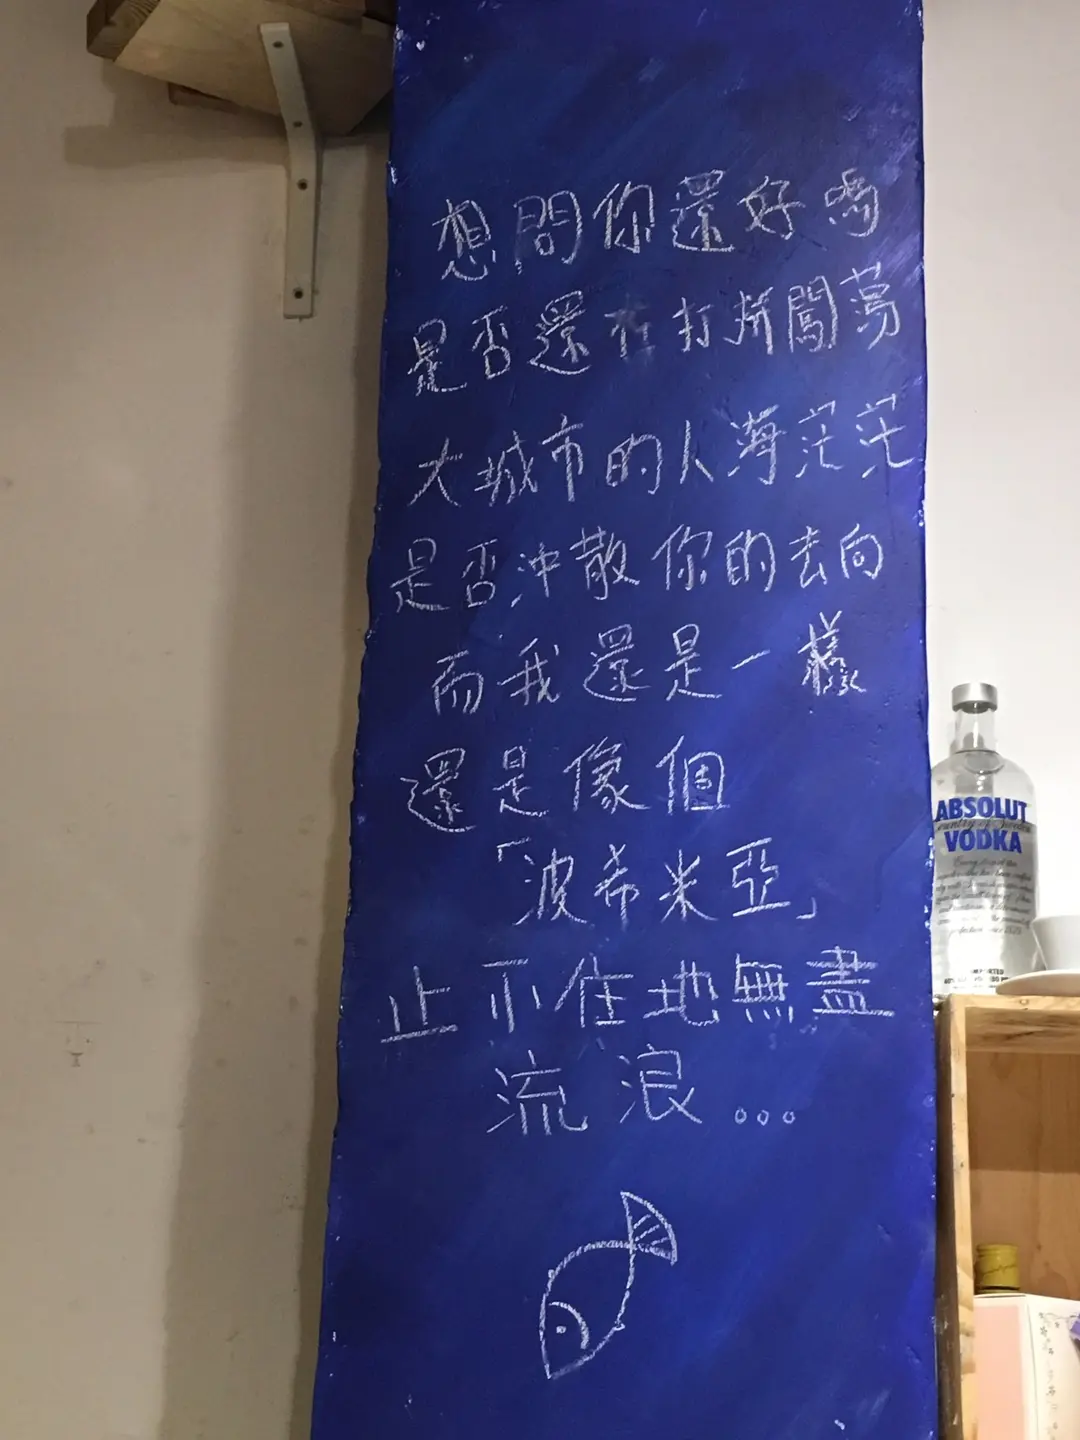 想問你還好嗎
是否還在打拼闖蕩
大城市的人海茫茫
是否沖散你的去向
而我還是一樣
還是像個
「波希米亞」
止不住地無盡
流浪...
ABSOLUT
Country of Sweden
VODKA
IMPORTED